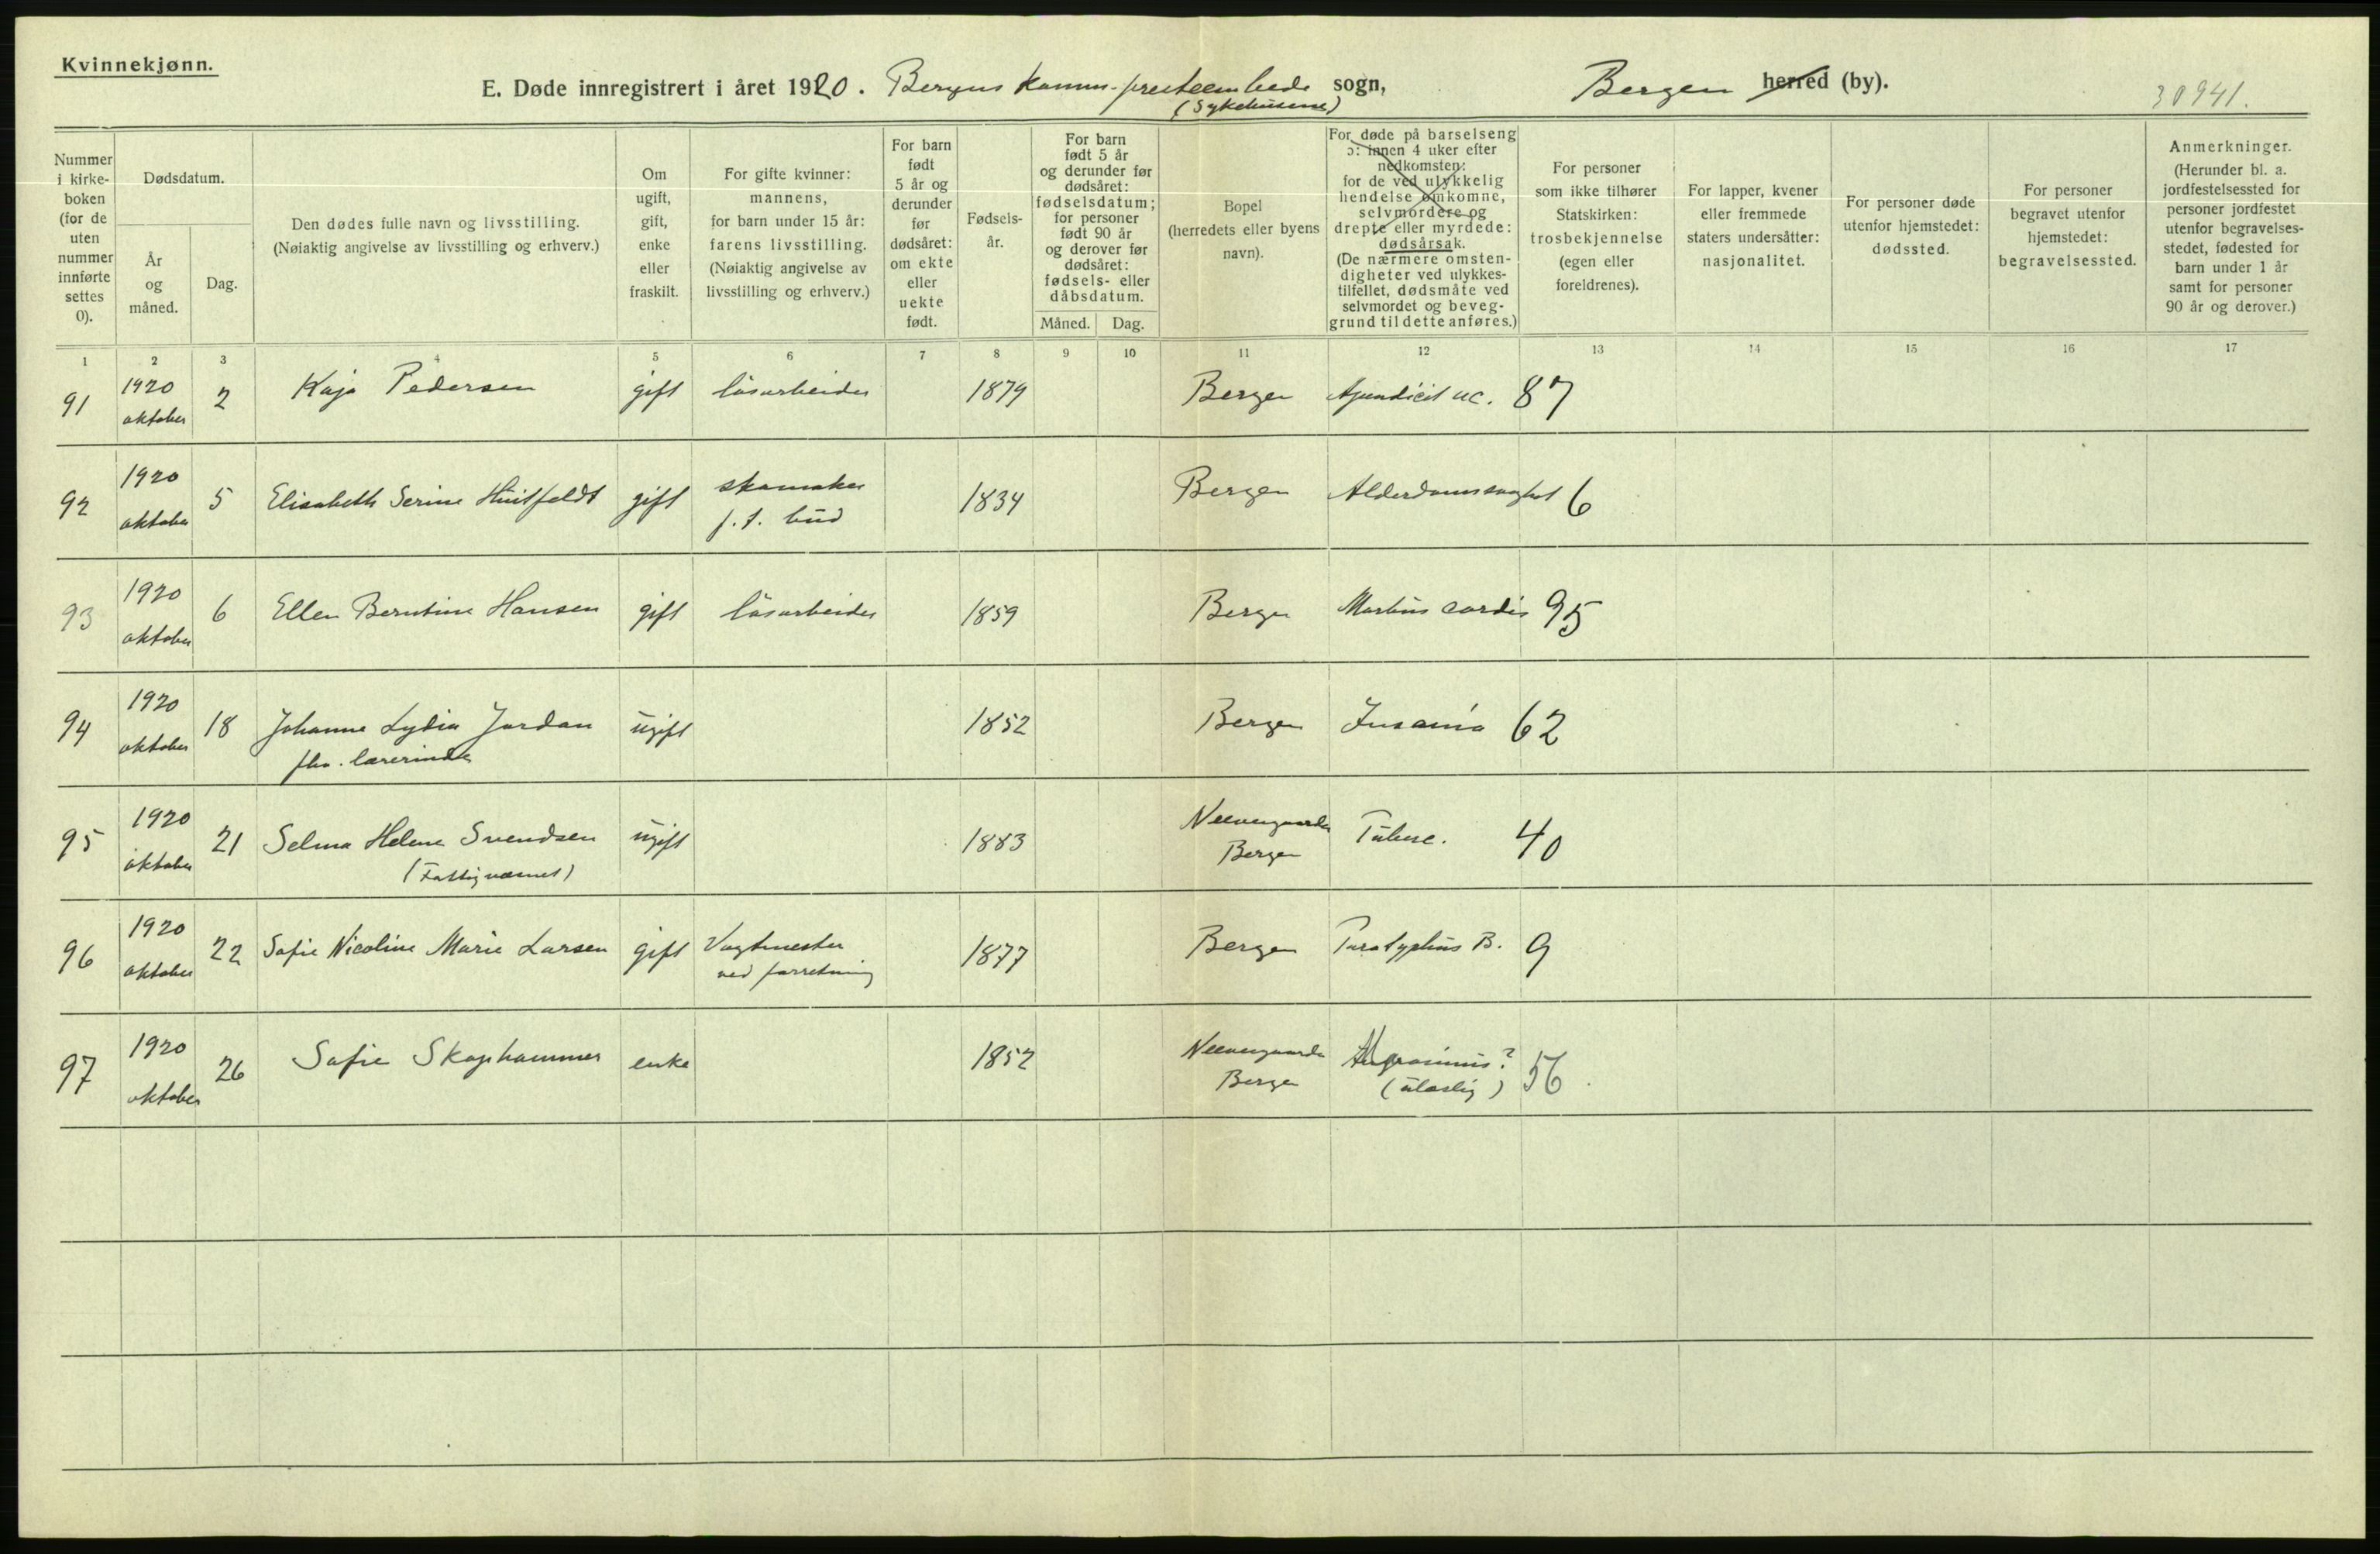 Kvinnekjønn.
E. Døde innregistrert i året 1920. Bergens komm. presteembede sogn, Bergen herred (by). 30941.
(Sykehusene)
Nummer i kirke-boken (for de uten nummer innførte settes 0).
Dødsdatum.
År og måned.
Dag.
Den dødes fulle navn og livsstilling.
(Nøiaktig angivelse av livsstilling og erhverv.)
Om ugift, gift, enke eller fraskilt.
For gifte kvinner: mannens, for barn under 15 år: farens livsstilling.
(Nøiaktig angivelse av livsstilling og erhverv.)
For barn født 5 år og derunder før dødsåret: om ekte eller uekte født.
Fødsels-år.
For barn født 5 år og derunder før dødsåret: fødselsdatum; for personer født 90 år og derover før dødsåret: fødsels- eller dåbsdatum.
Måned. Dag.
Bopel (herredets eller byens navn).
For døde på barselseng ɔ: innen 4 uker efter nedkomsten: for de ved ulykkelig hendelse omkomne, selvmordere og drepte eller myrdede: dødsårsak.
(De nærmere omsten-digheter ved ulykkes-tilfellet, dødsmåte ved selvmordet og beveg-grund til dette anføres.)
For personer som ikke tilhører Statskirken: trosbekjennelse (egen eller foreldrenes).
For lapper, kvener eller fremmede staters undersåtter: nasjonalitet.
For personer døde utenfor hjemstedet: dødssted.
For personer begravet utenfor hjemstedet: begravelsessted.
Anmerkninger.
(Herunder bl. a. jordfestelsessted for personer jordfestet utenfor begravelses-stedet, fødested for barn under 1 år samt for personer 90 år og derover.)
1 2 3 4 5 6 7 8 9 10 11 12 13 14 15 16 17
91 1920 oktober 2 Kaja Pedersen gift løsarbeider 1879 Bergen 87
92 1920 oktober 5 Elisabeth Serine Huitfeldt gift skomaker f. t. bud 1834 Bergen Alderdomssvaghet 6
93 1920 oktober 6 Ellen Berntine Hansen gift løsarbeider 1859 Bergen Morbus cordis 95
94 1920 oktober 18 Johanne Lydia Jordan ugift 1852 Bergen Insania 62
fhv. lærerinde
95 1920 oktober 21 Selma Helene Svendsen ugift 1883 Neevengaarden Bergen Tuberc. 40
(Fattigvæsnet)
96 1920 oktober 22 Sofie Nicoline Marie Larsen gift Vagtmester ved forretning 1877 Bergen Paratyphus B. 9
97 1920 oktober 26 Sofie Skaphammer enke 1852 Neevengaarden Bergen ? (ulæslig) 56